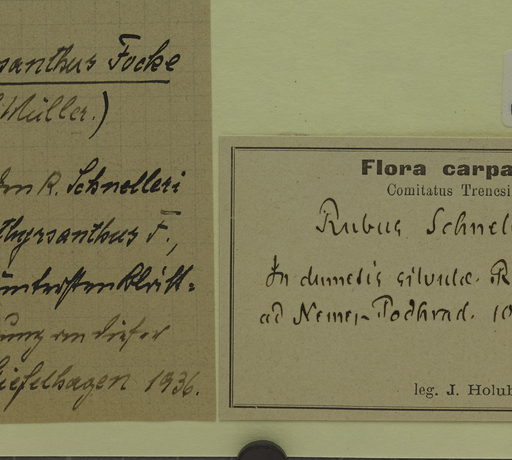 santhus Focke
Müller.)
R. Schnelleri
thyrsanthus F.,
untersten Blätt-
ung an dieser
Siefelhagen 1936.
Flora carpa
Comitatus Trencsi
Rubus Schnel
In dumetis silvulae. R
ad Nemes-Podhrad. 10
leg. J. Holub